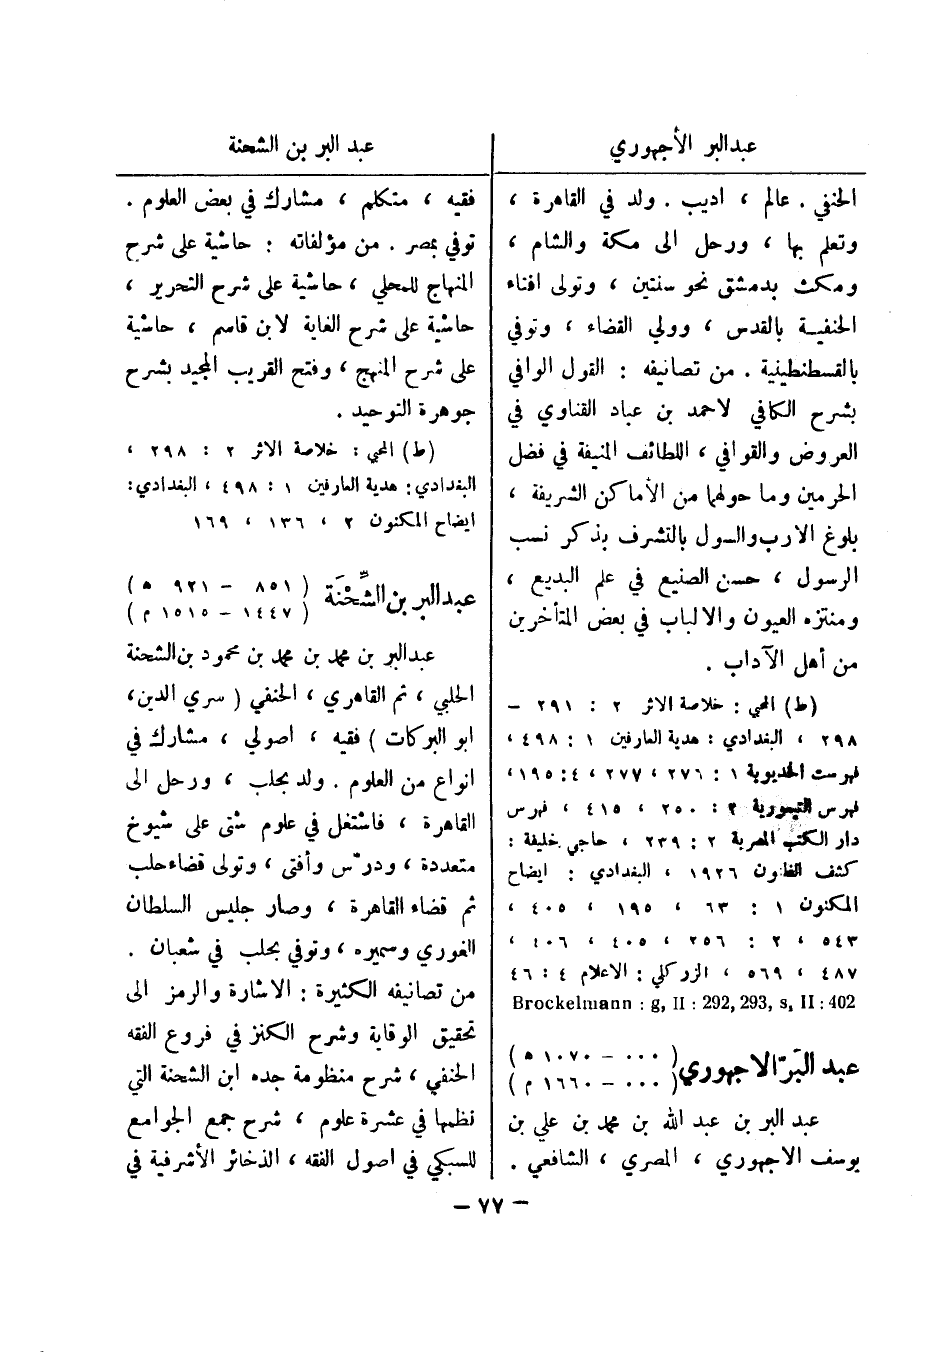 عبدالبر الأجهوري
الحنفي . عالم ، اديب . ولد في القاهرة ،
وتعلم بها ، ورحل الى مكة والشام ،
ومكث بدمشق نحو سنتين ، وتولى افتاء
الحنفيـة بالقدس ، وولي القضاء ، وتوفي
بالقسطنطينية . من تصانيفه : القول الوافي
بشرح الكافي لاحمد بن عباد القناوي في
العروض والقوافي ، اللطائف المنيفة في فضل
الحرمين وما حولهما من الأماكن الشريفة ،
بلوغ الارب والسول بالتشرف بذكر نسب
الرسول ، حسن الصنيع في علم البديع ،
ومنتزه العيون والالباب في بعض المتأخرين
من أهل الآداب .
(ط) المحبي : خلاصة الاثر ٢ : ٢٩١ –
٢٩٨ ، البغدادي : هدية العارفين ١ : ٤٩٨ ،
فهرست الخديوية ١ : ٢٧٦ ، ٢٧٧ ، ٤ : ١٩٥ ،
فهرس التيمورية ٢ : ٢٥٠ ، ٤١٥ ، فهرس
دار الكتب المصرية ٢ : ٢٣٩ ، حاجي خليفة :
كشف الظنون ١٩٢٦ ، البغدادي : ايضاح
المكنون ١ : ٦٣ ، ١٩٥ ، ٤٠٥ ،
٥٤٣ ، ٢ : ٢٥٦ ، ٤٠٥ ، ٤٠٦ ،
٤٨٧ ، ٥٦٩ ، الزركلي : الاعلام ٤ : ٤٦
Brockelmann : g, II : 292, 293, s, II : 402
عبد البَرّ الاجهوري (٠٠٠ – ١٠٧٠ ه)
(٠٠٠ – ١٦٦٠ م)
عبد البر بن عبد الله بن محمد بن علي بن
يوسف الاجهوري ، المصري ، الشافعي .
عبد البر بن الشحنة
فقيه ، متكلم ، مشارك في بعض العلوم .
توفي بمصر . من مؤلفاته : حاشية على شرح
المنهاج للمحلي ، حاشية على شرح التحرير ،
حاشية على شرح الغاية لابن قاسم ، حاشية
على شرح المنهج ، وفتح القريب المجيد بشرح
جوهرة التوحيد .
(ط) المحبي : خلاصة الاثر ٢ : ٢٩٨ ،
البغدادي : هدية العارفين ١ : ٤٩٨ ، البغدادي :
ايضاح المكنون ٢ ، ١٣٦ ، ١٦٩
عبدالبر بن الشِّحْنَة (٨٥١ – ٩٢١ ه)
(١٤٤٧ – ١٥١٥ م)
عبدالبر بن محمد بن محمد بن محمود بن الشحنة
الحلبي ، ثم القاهري ، الحنفي ( سري الدين ،
ابو البركات ) فقيه ، اصولي ، مشارك في
انواع من العلوم . ولد بحلب ، ورحل الى
القاهرة ، فاشتغل في علوم شتى على شيوخ
متعددة ، ودرّس وأفتى ، وتولى قضاء حلب
ثم قضاء القاهرة ، وصار جليس السلطان
الغوري وسميره ، وتوفي بحلب في شعبان .
من تصانيفه الكثيرة : الاشارة والرمز الى
تحقيق الوقاية وشرح الكنز في فروع الفقه
الحنفي ، شرح منظومة جده ابن الشحنة التي
نظمها في عشرة علوم ، شرح جمع الجوامع
للسبكي في اصول الفقه ، الذخائر الأشرفية في
– ٧٧ –